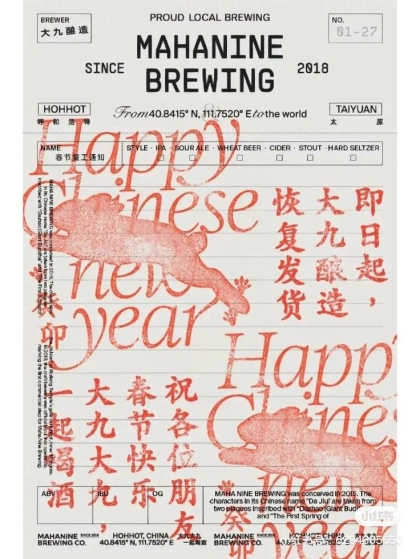 PROUD LOCAL BREWING
BREWER
大九酿造
NO.
01-27
MAHANINE
BREWING
SINCE
2018
HOHHOT
呼和浩特
From 40.8415° N, 111.7520° E to the world
TAIYUAN
太原
NAME
春节复工通知
STYLE · IPA · SOUR ALE · WHEAT BEER · CIDER · STOUT · HARD SELTZER
Happy
Chinese
new
year
即日起，
大九酿造
恢复发货
癸卯
Happy
Chinese
new
祝各位朋友
春节快乐
大九大九，
一起喝酒
ABV
IBU
OG
MAHA NINE BREWING was conceived in 2015. The
characters in its Chinese name "Da Jiu" are taken from
two plaques inscribed with "Dazhao (Giant Bud
and "The First Spring of
MAHANINE
BREWING CO.
SINCE 2018
HOHHOT, CHINA
40.8415° N, 111.7520° E
大九大九
一起喝酒
MAHANINE
BREWING CO.
小红书